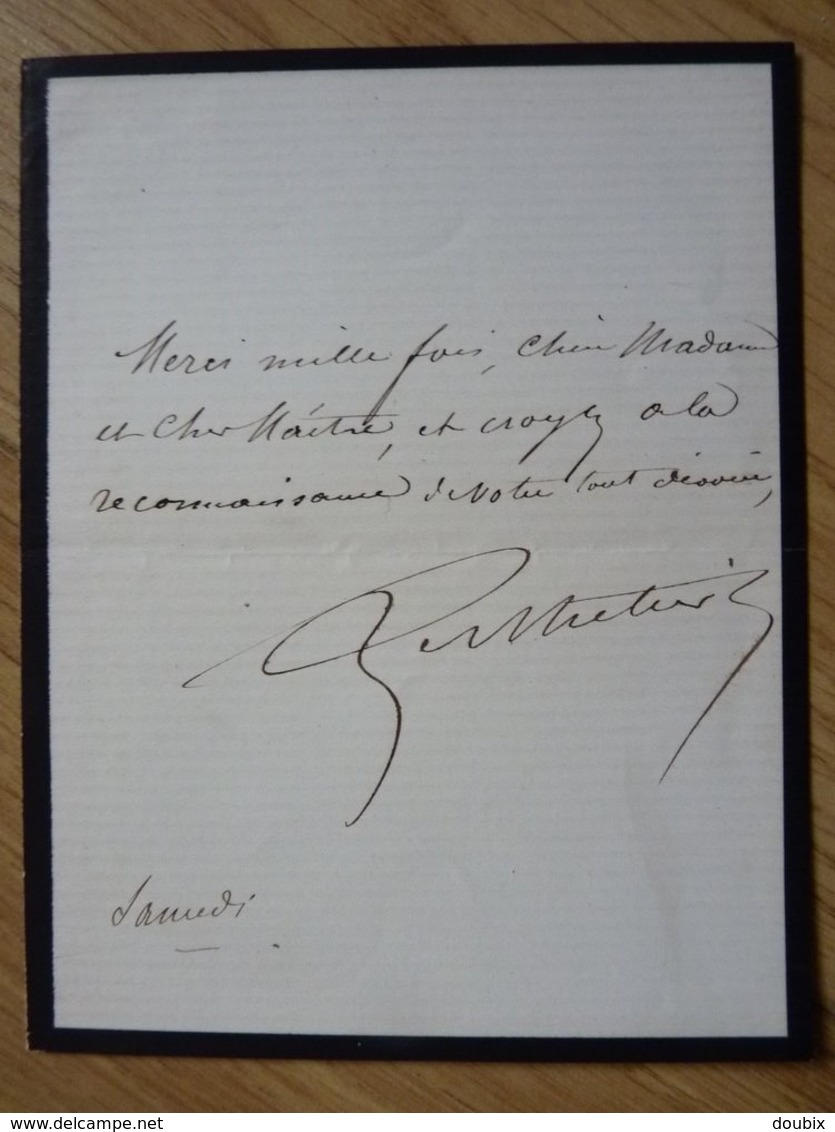 Merci mille fois, chère Madame
et cher Maître, et croyez à la
reconnaissance de votre tout dévoué,
Berthelier
Samedi
www.delcampe.net
doubix